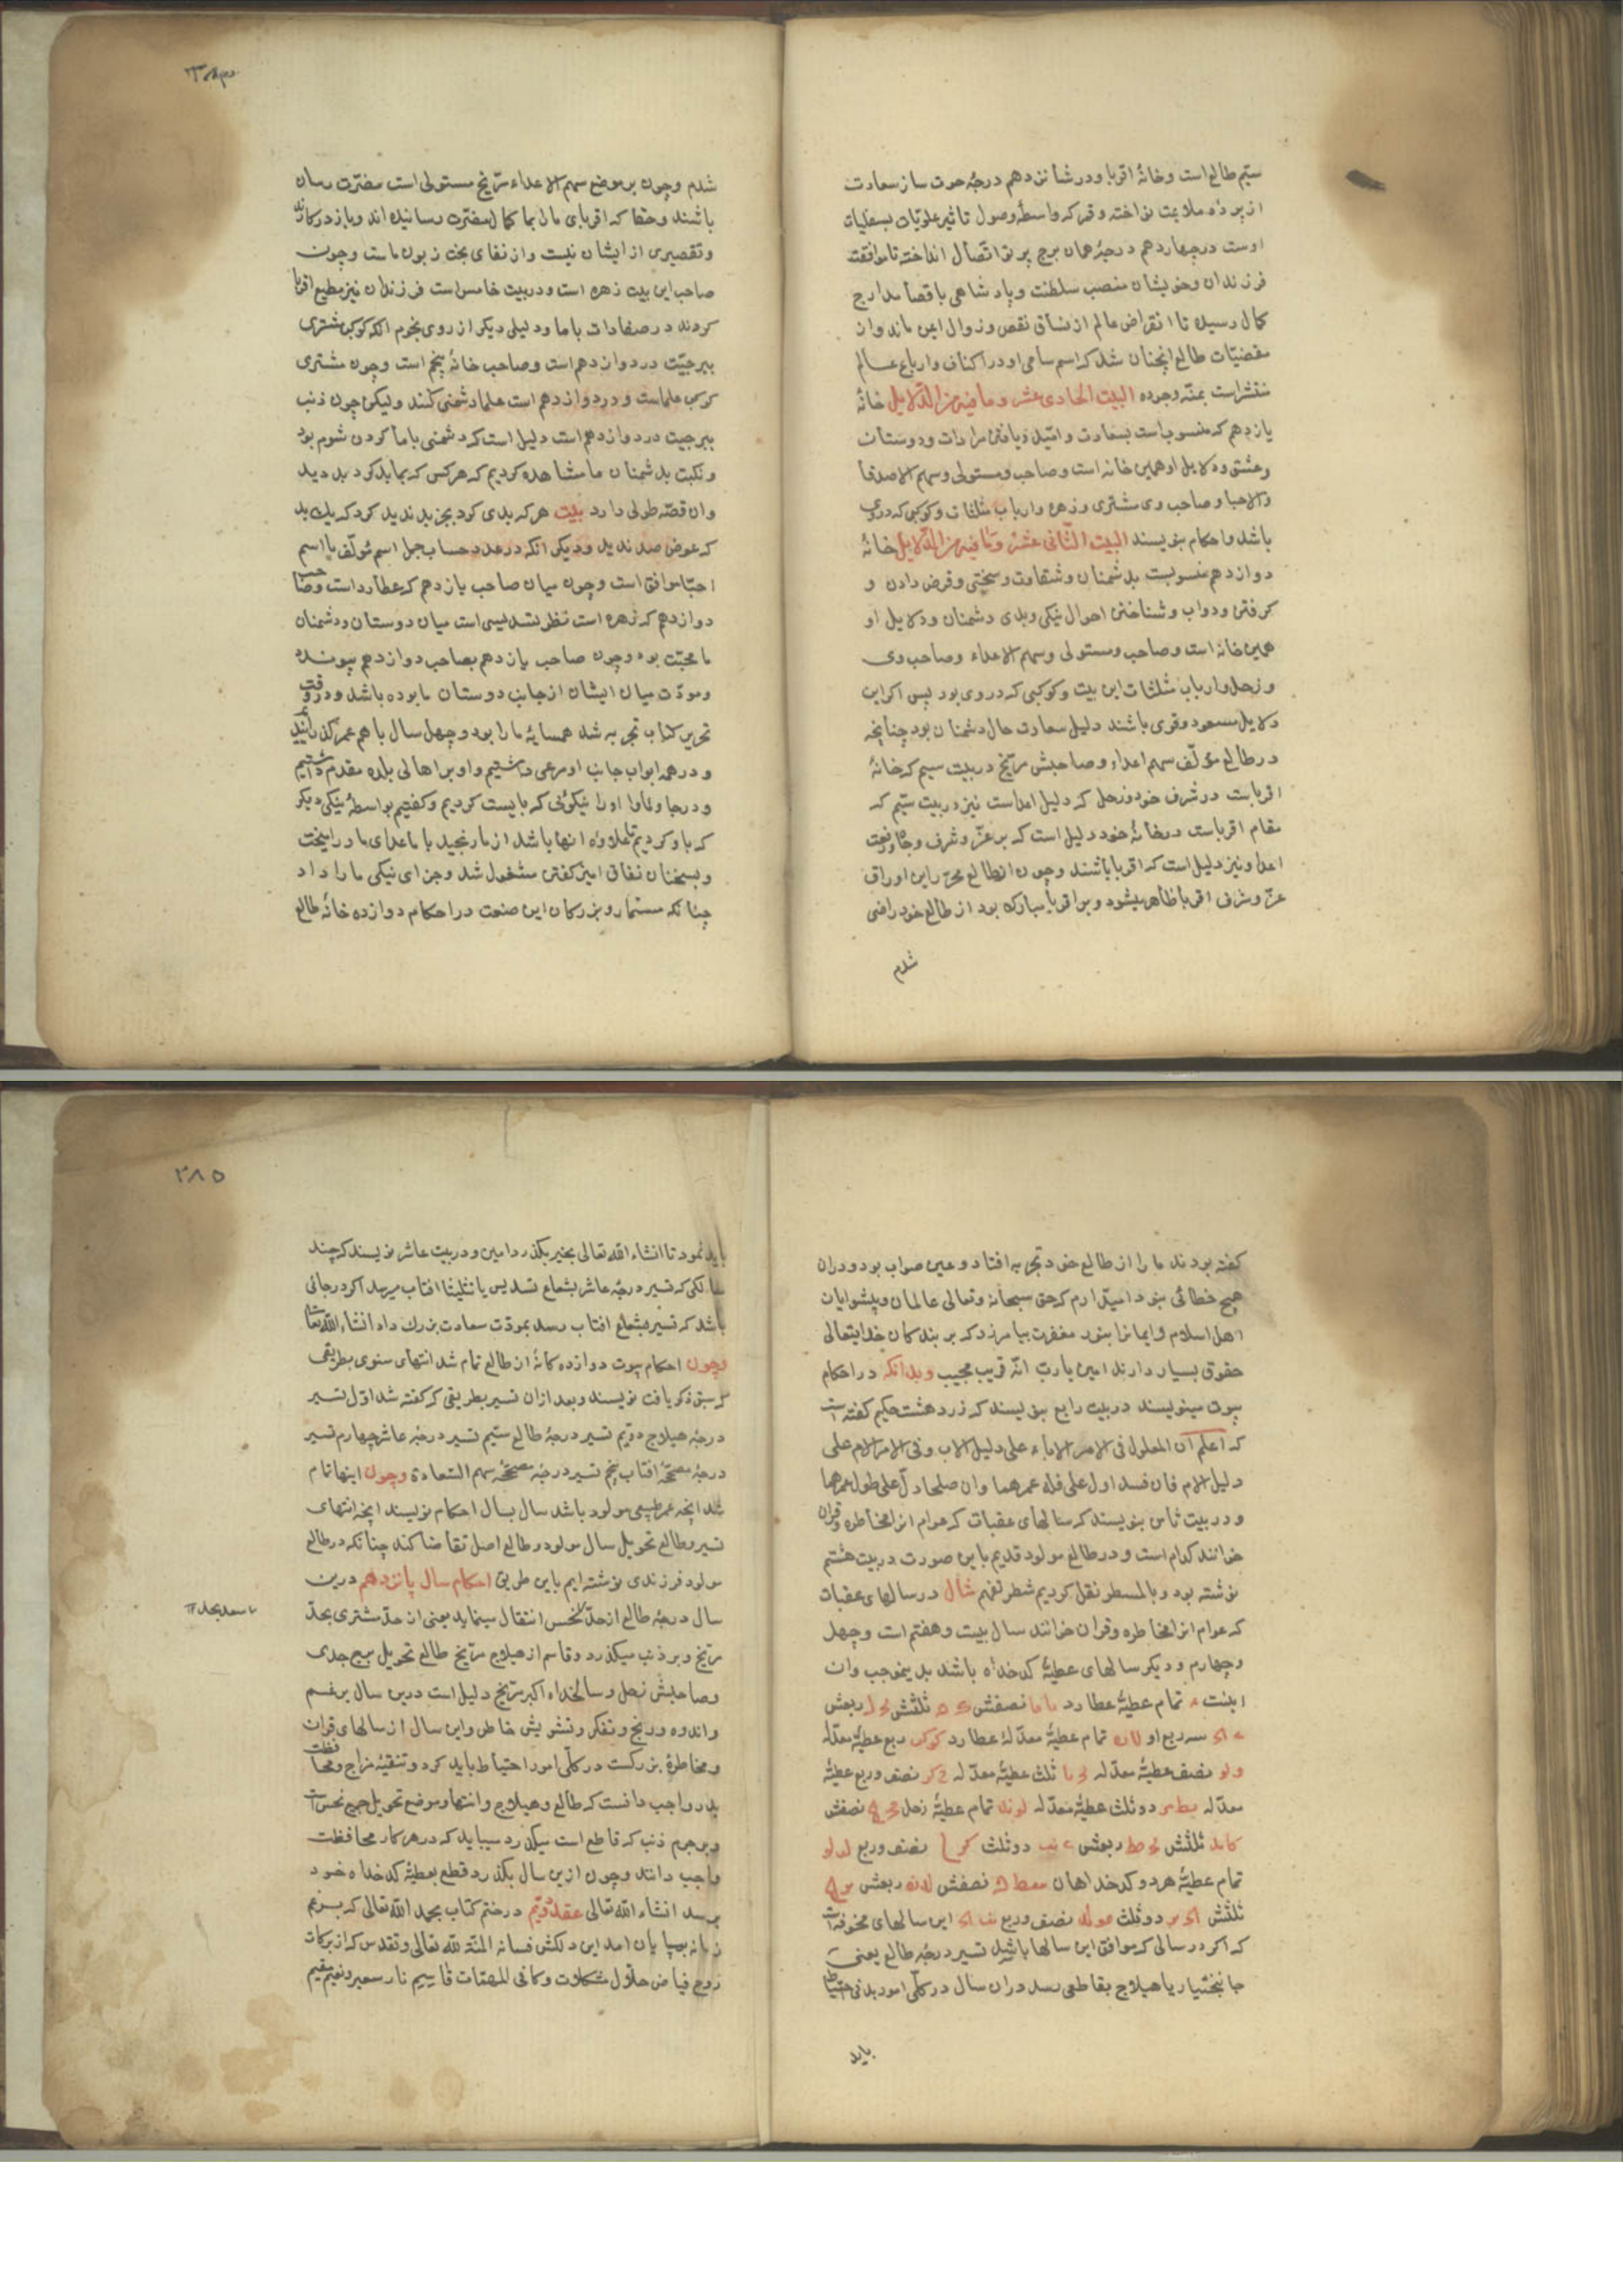 ستیم طالع است وخانهٔ اقربا ودر شانزدهم درجهٔ حوت ساز سعادت
از پرده ملایمت نواخته وقمر که واسطهٔ وصول تاثیر علویات بسفلیات
اوست درچهاردهم درجهٔ همان برج پرتو اتصال انداخته تا موافقت
فرزندان وخویشان منصب سلطنت وپادشاهی باقصا مدارج
کمال رسیده تا انقراض عالم از نقص وزوال ایمن ماند وان
مقضیّات طالع انچنان شد که اسم سامی او در اکناف وارباع عالم
منتشر است بمنّه وجوده البیت الحادی عشر وما فیه من الدّلایل خانهٔ
یازدهم که منسوب است بسعادت وامّید ویافتن مرادات ودوستان
وعشق ودلایل او همین خانه است وصاحب ومستولی وسهم الاصدقا
والاحبا وصاحب وی مشتری وزهره وارباب مثلثات وکوکبی که در وی
باشد واحکام بنویسند البیت الثّانی عشر وما فیه من الدّلایل خانهٔ
دوازدهم منسوبست بدشمنان وشقاوت وسختی وقرض دادن و
گرفتن ودواب وشناختن احوال نیکی وبدی دشمنان ودلایل او
همین خانه است وصاحب ومستولی وسهم الاعداء وصاحب وی
وزحل وارباب مثلثات این بیت وکوکبی که در وی بود پس اگر این
دلایل مسعود وقوی باشند دلیل سعادت حال دشمنان بود چنانچه
در طالع مؤلّف سهم اعداء وصاحبش مرّیخ در بیت سیم که خانهٔ
اقرباست در شرف خود وزحل که دلیل اعداست نیز در بیت ستیم که
مقام اقرباست درخانهٔ خود دلیل است که بر عزّ وشرف وجاه ورفعت
اعدا ونیز دلیل است که اقربا باشند وچون از طالع محرّر این اوراق
عزّ وشرف اقربا ظاهر میشود وبر اقربا مبارک بود از طالع خود راضی
شدم
شدم وچون بر موضع سهم الاعداء مرّیخ مستولی است مضرّت رسان
باشند وحقا که اقربای ما را بما کمال مضرّت رسانیده اند وباز در کارند
وتقصیری از ایشان نیست واز بخت زبون ماست وچون
صاحب این بیت زهره است ودر بیت خامس است فرزندان نیز مطیع اقربا
کردند در معادات باما ودلیلی دیگر از روی نجوم انکه کوکب مشتری
ببرجیّت در دوازدهم است وصاحب خانهٔ پنجم است وچون مشتری
کوکب علماست ودر دوازدهم است علما دشمنی کنند ولیکن چون ذنب
ببرجیت در دوازدهم است دلیل است که دشمنی باما کردن شوم بود
ونکبت بدشمنان ما مشاهده کردیم که هر کس که بما بد کرد بد دید
وان قصّه طولی دارد بیت هر که بدی کرد بجز بد ندید کرد که یک بد
که عوض صد ندید ودیگر انکه در عدد حساب جمل اسم مؤلّف با اسم
احبّا موافق است وچون میان صاحب یازدهم که عطارد است وصاحب
دوازدهم که زهره است نظر تسدیسی است میان دوستان ودشمنان
ما محبّت بود وچون صاحب یازدهم بصاحب دوازدهم پیوند
ومودّت میان ایشان از جانب دوستان ما بوده باشد ودر وقت
تحریر کتاب تجربه شد همسایهٔ ما را بود وچهل سال باهم عمر گذرانیدیم
ودر همه ابواب جانب او مرعی داشتیم واو بر اهالی بلده مقدم داشتیم
ودرجا وماوا اورا نیکوئی که بایست کردیم وگفتیم بواسطهٔ نیکی دیگر
که باو کردیم علاوه انها باشد از ما رنجید با اعدای ما در امیخت
وبسخنان نفاق امیز گفتن مشغول شد وجزای نیکی ما را داد
چنانکه مستمار وبزرکان این صنعت در احکام دوازده خانهٔ طالع
۲۸۵
گفته بودند ما را از طالع خود تجربه افتاد وعین صواب بود ودران
هیچ خطائی نبود امیّدوارم که حق سبحانه وتعالی عالمان وپیشوایان
اهل اسلام وایمانرا بنور مغفرت بیامرزد که بر بندکان خدایتعالی
حقوق بسیار دارند امین یا ربّ انّه قریب مجیب وبدانکه در احکام
بیوت مینویسند در بیت رابع بنویسند که زردهشت حکیم گفته است
که اعلم ان المعلول فی الامر الاباء علی دلیل الاب وفی الامر الام علی
دلیل الام فان فسد اول علی قلة عمرهما وان صلحا دلّ علی طول عمرهما
ودر بیت ثامن بنویسند که سالهای عقبات که عوام انرا مخاطره وقران
خوانند کدام است ودر طالع مولود قدیم باین صورت در بیت هشتم
نوشته بود وبالسطر نقل کردیم مثال در سالهای عقبات
که عوام انرا مخاطره وقران خوانند سال بیست وهفتم است وچهل
وچهارم ودیگر سالهای عطیّهٔ کدخداه باشد بدینموجب وان
اینست تمام عطیّهٔ عطارد نصفش ثلثش ربعش
سه ربع او تمام عطیّهٔ معدّلهٔ عطارد ربع عطیّهٔ معدّله
نصف عطیّهٔ معدّله ثلث عطیّهٔ معدّله نصف وربع عطیّهٔ
معدّله دو ثلث عطیّهٔ معدّله تمام عطیّهٔ زحل نصفش
ثلثش ربعش دو ثلث نصف وربع
تمام عطیّهٔ هر دو کدخداهان نصفش ربعش
ثلثش دو ثلث نصف وربع این سالهای مخوفه است
که اگر در سالی که موافق این سالها باشد تسیر درجهٔ طالع یعنی
جانبختیار یا هیلاج بقاطعی رسد دران سال در کلّی امور بدنی احتیاط
باید
باید نمود تا انشاء الله تعالی بخیر بگذرد امین ودر بیت عاشر نویسند که چند
سالگی که تسیر درجهٔ عاشر بشعاع تسدیس یا تثلیث افتاب میرسد اگر درجاتی
باشد که تسیر بشعاع افتاب رسد بمودّت سعادت بزرك داد انشاء الله تعا
وچون احکام بیوت دوازده گانهٔ از طالع تمام شد انتهای سنوی بطریقی
که سبق ذکر یافت نویسند وبعد ازان تسیر بطریقی که گفته شد اوّل تسیر
درجهٔ هیلاج دویّم تسیر درجهٔ طالع ستیم تسیر درجهٔ عاشر چهارم تسیر
درجهٔ مصحّحهٔ افتاب پنجم تسیر درجهٔ مصحّحهٔ سهم السّعادة وچون اینها تمام
شد انچه عمر طبیعی مولود باشد سال بسال احکام نویسند انچه انتهای
تسیر وطالع تحویل سال مولود وطالع اصل تقاضا کند چنانکه در طالع
مولود فرزندی نوشته ایم باین طریق احکام سال پانزدهم درین
سال درجهٔ طالع از حدّ نحس انتقال مینماید یعنی از حدّ مشتری بحدّ
مرّیخ وبر ذنب میکذرد وقاسم از هیلاج مرّیخ طالع تحویل برج جدی
وصاحبش زحل وسالخداه اکبر مرّیخ دلیل است درین سال بر غم
واندوه ورنج وتفکر وتشویش خاطر واین سال از سالهای قران
ومخاطرهٔ بزرکست در کلّی امور احتیاط باید کرد وتنقیهٔ مزاج ومحافظت
بدن واجب دانست که طالع وهیلاج وانتها وموضع تحویل برج نحس است
وبر جرم ذنب که قاطع است میکذرد میباید که در هر کار محافظت
واجب دانند وچون ازین سال بگذرد قطع بعطیّهٔ کدخداه خود
برسد انشاء الله تعالی عقد دویّم در ختم کتاب بحمد الله تعالی که بزعم
زمانه بپایان امد این دلکش فسانه المنّة لله تعالی وتقدس که از برکات
روح فیاض حلّال مشکلات وکافی المهمّات قاسیم نار سعیر ونعیم مقیم